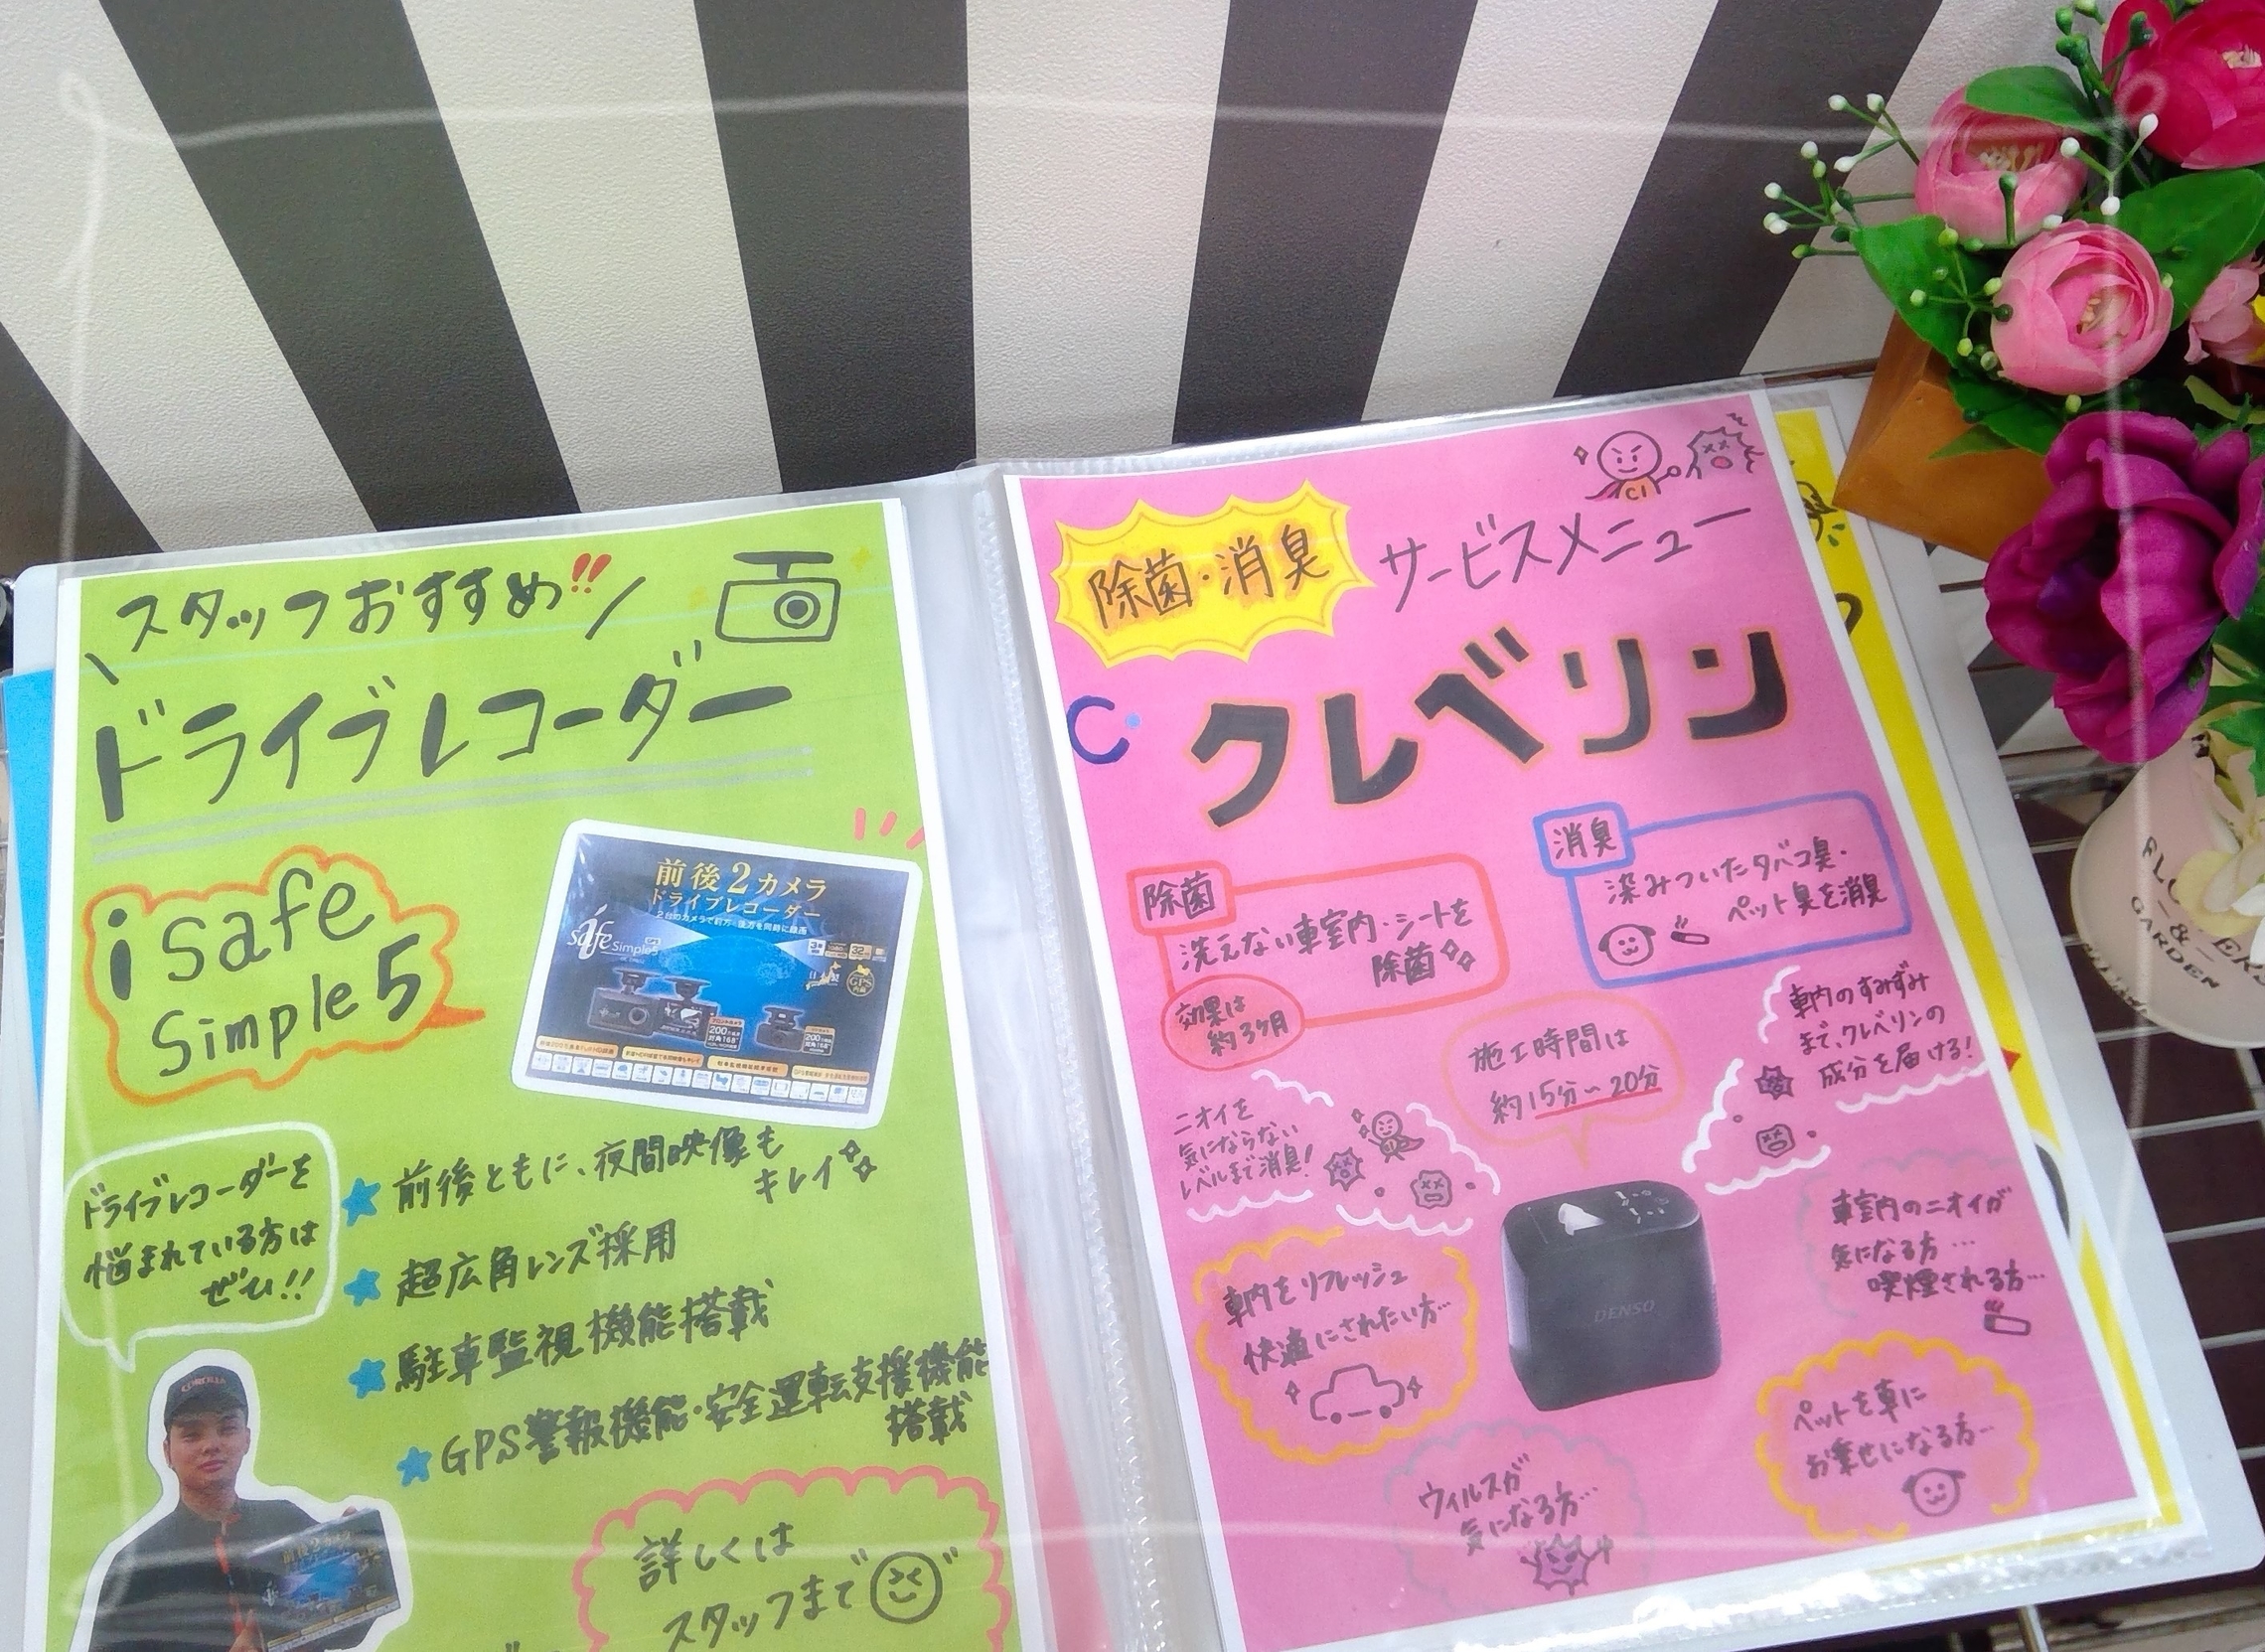 スタッフおすすめ!!
ドライブレコーダー
i safe
simple 5
前後2カメラ
ドライブレコーダー
2台のカメラで前方・後方を同時に録画
safe Simple5
GPS
内蔵
200
200
ドライブレコーダーを
悩まれている方は
ぜひ!!
前後ともに、夜間映像も
キレイ
超広角レンズ採用
駐車監視機能搭載
GPS警報機能・安全運転支援機能
搭載
COROLLA
前後2カメラ
詳しくは
スタッフまで
CI
除菌・消臭
サービスメニュー
クレベリン
除菌
洗えない車室内・シートを
除菌
効果は
約3ヶ月
消臭
染みついたタバコ臭・
ペット臭を消臭
施工時間は
約15分〜20分
車内のすみずみ
まで、クレベリンの
成分を届ける!
ニオイを
気にならない
レベルまで消臭!
DENSO
車内をリフレッシュ
快適にされたい方…
車室内のニオイが
気になる方…
喫煙される方…
ウィルスが
気になる方…
ペットを車に
お乗せになる方…
GARDEN